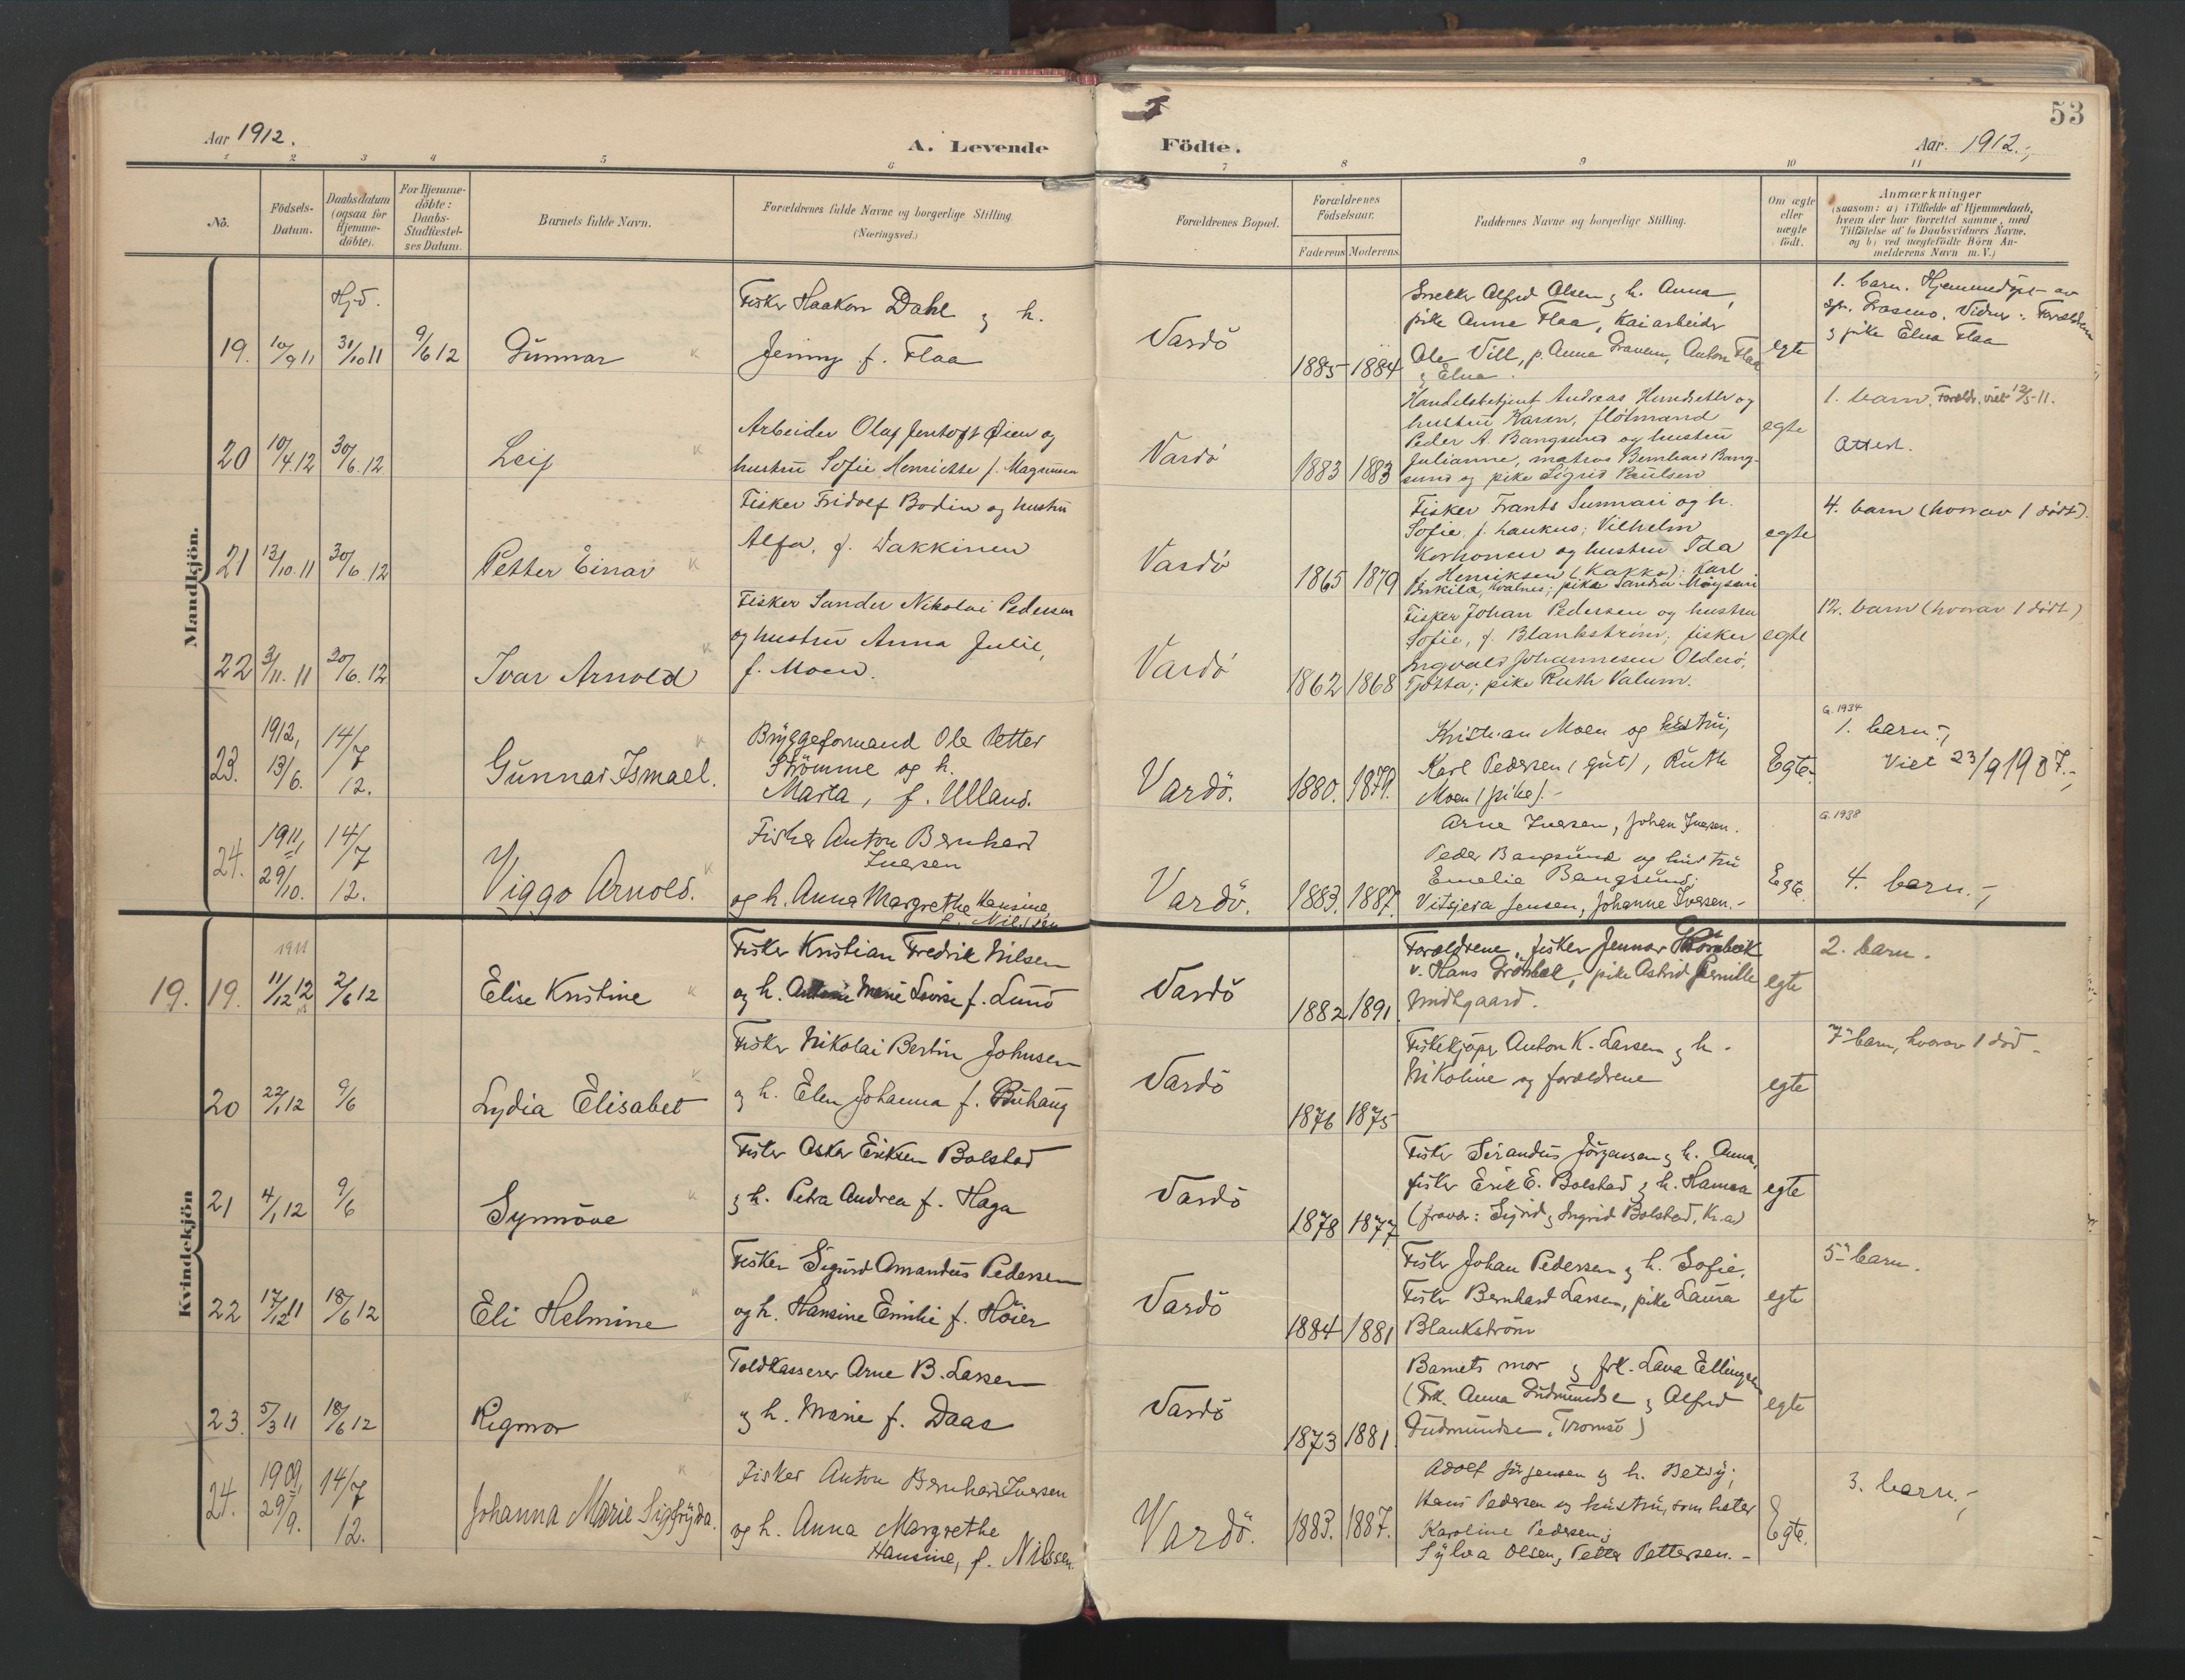 53
Aar 1912.
A. Levende
Födte.
Aar. 1912.
1 2 3 4 5 6 7 8 9 10 11
No.
Födsels-Datum.
Daabsdatum (ogsaa for Hjemme-döbte).
For Hjemme-döbte: Daabs-Stadfæstel-ses Datum.
Barnets fulde Navn.
Forældrenes fulde Navne og borgerlige Stilling.
(Næringsvei.)
Forældrenes Bopæl.
Forældrenes Födselsaar.
Faderens Moderens
Faddernes Navne og borgerlige Stilling.
Om ægte eller uægte födt.
Anmærkninger
(saasom: a) i Tilfælde af Hjemmedaab,
hvem der har forrettet samme, med
Tilföielse af to Daabsvidners Navne,
og b) ved uægtefödte Börn An-
melderens Navn m. V.)
Mandkjön.
Hjd.
19. 10/9 11 31/10 11 9/6 12 Gunnar
Fisker Haakon Dahl og h.
Jenny f. Flaa
Vardö
1885 1884
Alfred Olsen og h. Anna,
pike Anna Flaa, Kaiarbeider
Ole Vill, p. Anna Anton Flaa
og Elna.
egte
1. barn. Hjemmedöpt av
Vidner: Forældrene
og pike Elna Flaa
20 10/4.12 30/6.12 Leif
Arbeider Olaf Jentoft Öien og
hustru Sofie Henriette f. Magnussen
Vardö
1883 1883
Handelsbetjent Andreas og
hustru Karen,
Peder A. Bangsund og hustru
Julianne, matros Bernhard Bang-
sund og pike Sigrid Paulsen
egte
1. barn. Foreldr. viet 12/5-11.
Attest.
21 13/10.11 30/6.12 Petter Einar
Fisker Fridolf Bodin og hustru
Alfa, f. Wakkinen
Vardö
1865 1879
Fisker Frants Sunnari og h.
Sofie, f. Vilhelm
Korhonen og hustru Ida
Henriksen (Kakko); Karl
pike Sandra
egte
4. barn (hvorav 1 dödt).
22 3/11.11 30/6.12 Ivar Arnold
Fisker Sander Nikolai Pedersen
og hustru Anna Julie,
f. Moen.
Vardö
1862 1868
Fisker Johan Pedersen og hustru
Sofie, f. Blankström; fisker
Ingvald Johannesen Olderö,
Tjötta; pike Ruth Valum.
egte
12. barn (hvorav 1 dödt)
23. 1912, 13/6. 14/7 12. Gunnar Ismael.
Bryggeformand Ole Petter
Strömme og h.
Marta, f. Ulland.
Vardö.
1880. 1879.
Kristian Moen og hustru,
Karl Pedersen (gut), Ruth
Moen (pike).-
Egte.
G. 1934
1. barn.-,
Viet 23/9 1907.-,
24. 1911, 29/10. 14/7 12. Viggo Arnold.
Fisker Anton Bernhard
Iversen
og h. Anna Margrethe Hansine,
f. Nilssen
Vardö.
1883. 1887.
Arne Iversen, Johan Iversen.
Peder Bangsund og hustru
Emelie Bangsund;
Vitsjera Jensen, Johanne Iversen.-
Egte.
G. 1938
4. barn.-,
Kvindekjön
19. 19. 1911 11/12 12 2/6 12 Elise Kristine
Fisker Kristian Fredrik Nilsen
og h. Marie Lovise f. Lund
Vardö
1882 1891
Forældrene, fisker Jennar
v. Hans pike Astrid Pernille
egte
2. barn.
20 22/1 12 9/6 Lydia Elisabet
Fisker Nikolai Bertin Johnsen
og h. Elen Johanna f. Buhaug
Vardö
1876 1875
Fiskekjöper Anton K. Larsen og h.
Nikoline og forældrene
egte
7de barn, hvorav 1 död.
21 4/1 12 9/6 Synnöve
Fisker Oskar Eriksen Bolstad
og h. Petra Andrea f. Haga
Vardö
1878 1877
Fisker Jörgensen og h. Anna,
fisker Erik E. Bolstad og h. Hanna
(fravær: Sigrid og Ingrid Bolstad, Kr.a)
egte
22 17/12 11 18/6 12 Eli Helmine
Fisker Sigurd Amandus Pedersen
og h. Hansine Emilie f. Höier
Vardö
1884 1881
Fisker Johan Pedersen og h. Sofie,
Fisker Bernhard Larsen, pike Laura
Blankström
egte
5te barn.
23. 5/3 11 18/6 12 Rigmor
Toldkasserer Arne B. Larsen
og h. Marie f. Daae
Vardö
1873 1881.
Barnets mor og frk. Lava Ellingsen
(Frk. Anna Gudmundse og Alfred
Gudmundse, Tromsö)
egte
24. 1909, 29/9. 14/7 12. Johanna Marie Sigfryda.
Fisker Anton Bernhard Iversen
og h. Anna Margrethe
Hansine, f. Nilssen.
Vardö.
1883. 1887.
Adolf Jörgensen og h. Betsy;
Hans Pedersen og hustru, som heter
Karoline Pedersen;
Sylva Olsen, Petter Pettersen.-
Egte.
3. barn.-,